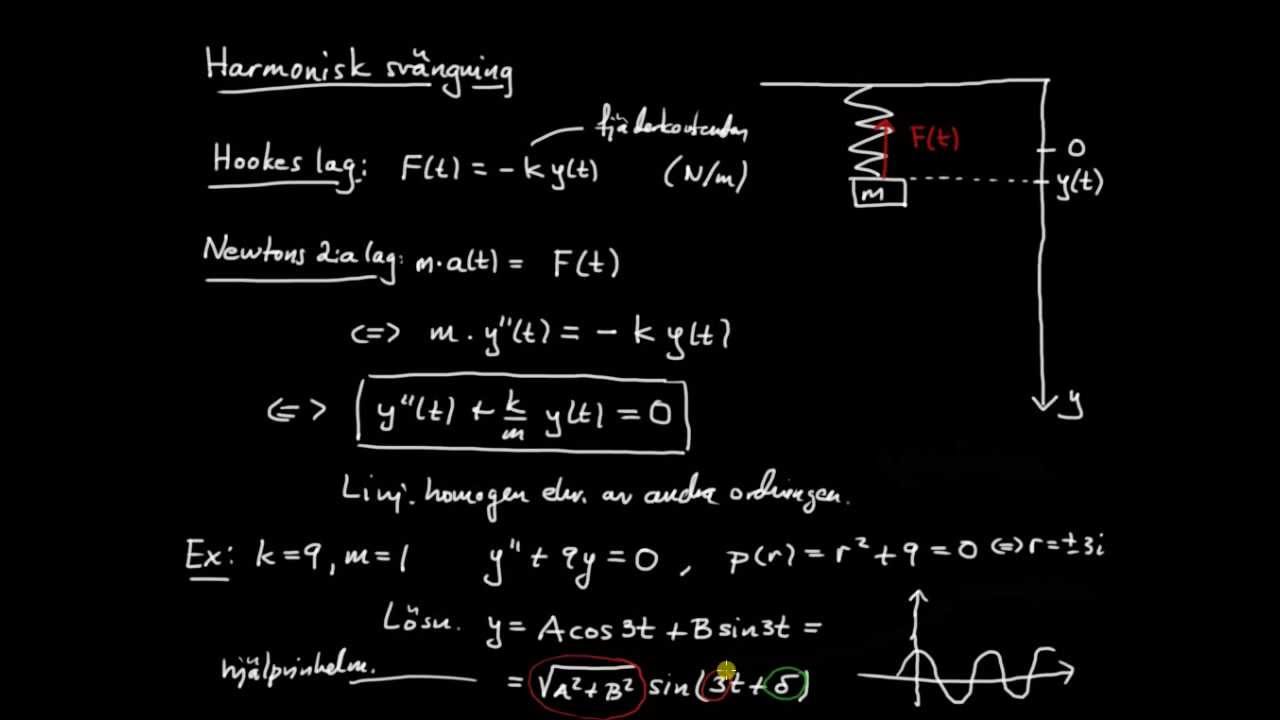 Harmonisk svängning
fjäderkonstanten
Hookes lag: F(t) = - k y(t) (N/m)
F(t)
0
m
y(t)
Newtons 2:a lag: m·a(t) = F(t)
<=> m · y''(t) = - k y(t)
<=> y''(t) + k/m y(t) = 0
y
Linj. homogen ekv. av andra ordningen.
Ex: k=9, m=1 y'' + 9y = 0 , p(r) = r² + 9 = 0 <=> r = ±3i
Lösn. y = A cos 3t + B sin 3t =
hjälpvinkelm.
= √A²+B² sin(3t + δ)